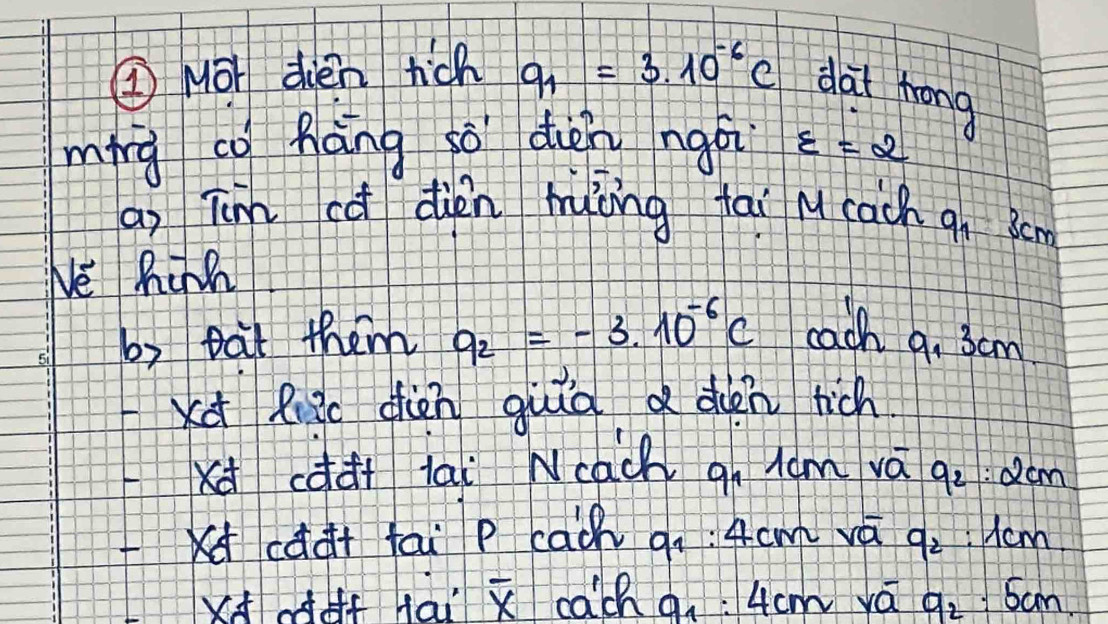 ① Một điện tích q₁ = 3.10⁻⁶C đặt trong
mtrg có hằng số điện ngôi ε = 2
a) Tìm cđ điện trường tại M cách q₁ 3cm
Vẽ hình
b) Đặt thêm q₂ = -3.10⁻⁶C cách q₁ 3cm.
- Xđ lực điện giữa 2 điện tích.
- Xđ cđđt tại N cách q₁ 1cm và q₂: 2cm
- Xđ cđđt tại P cách q₁: 4cm và q₂: 1cm.
- Xđ cđđt tại X cách q₁: 4cm và q₂: 5cm.